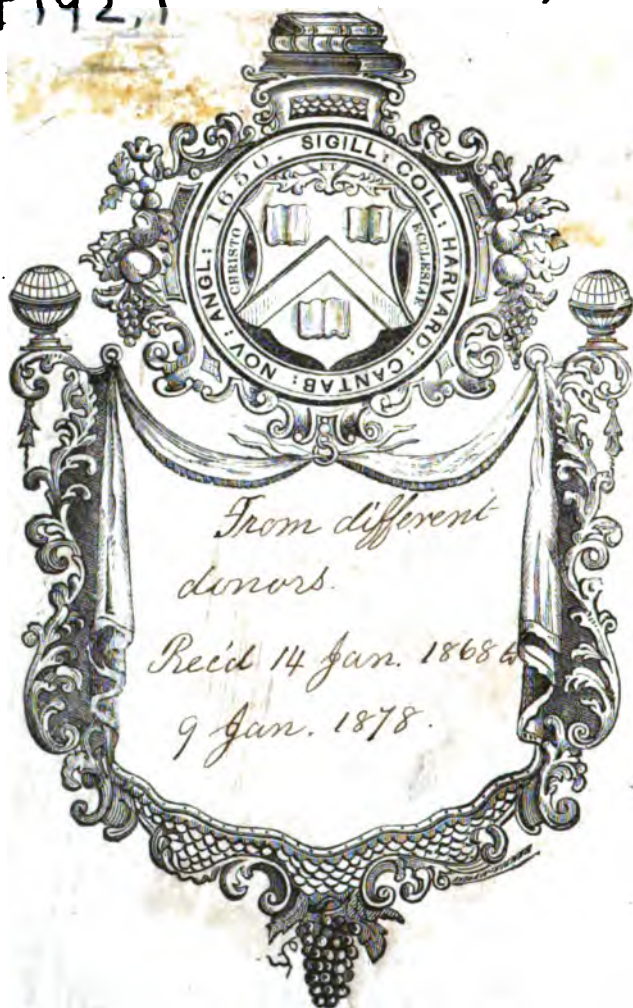 SIGILL: COLL: HARVARD: CANTAB: NOV: ANGL: 1650.
ET
CHRISTO
ECCLESIAE
From different
donors.
Rec'd 14 Jan. 1868 &
9 Jan. 1878.